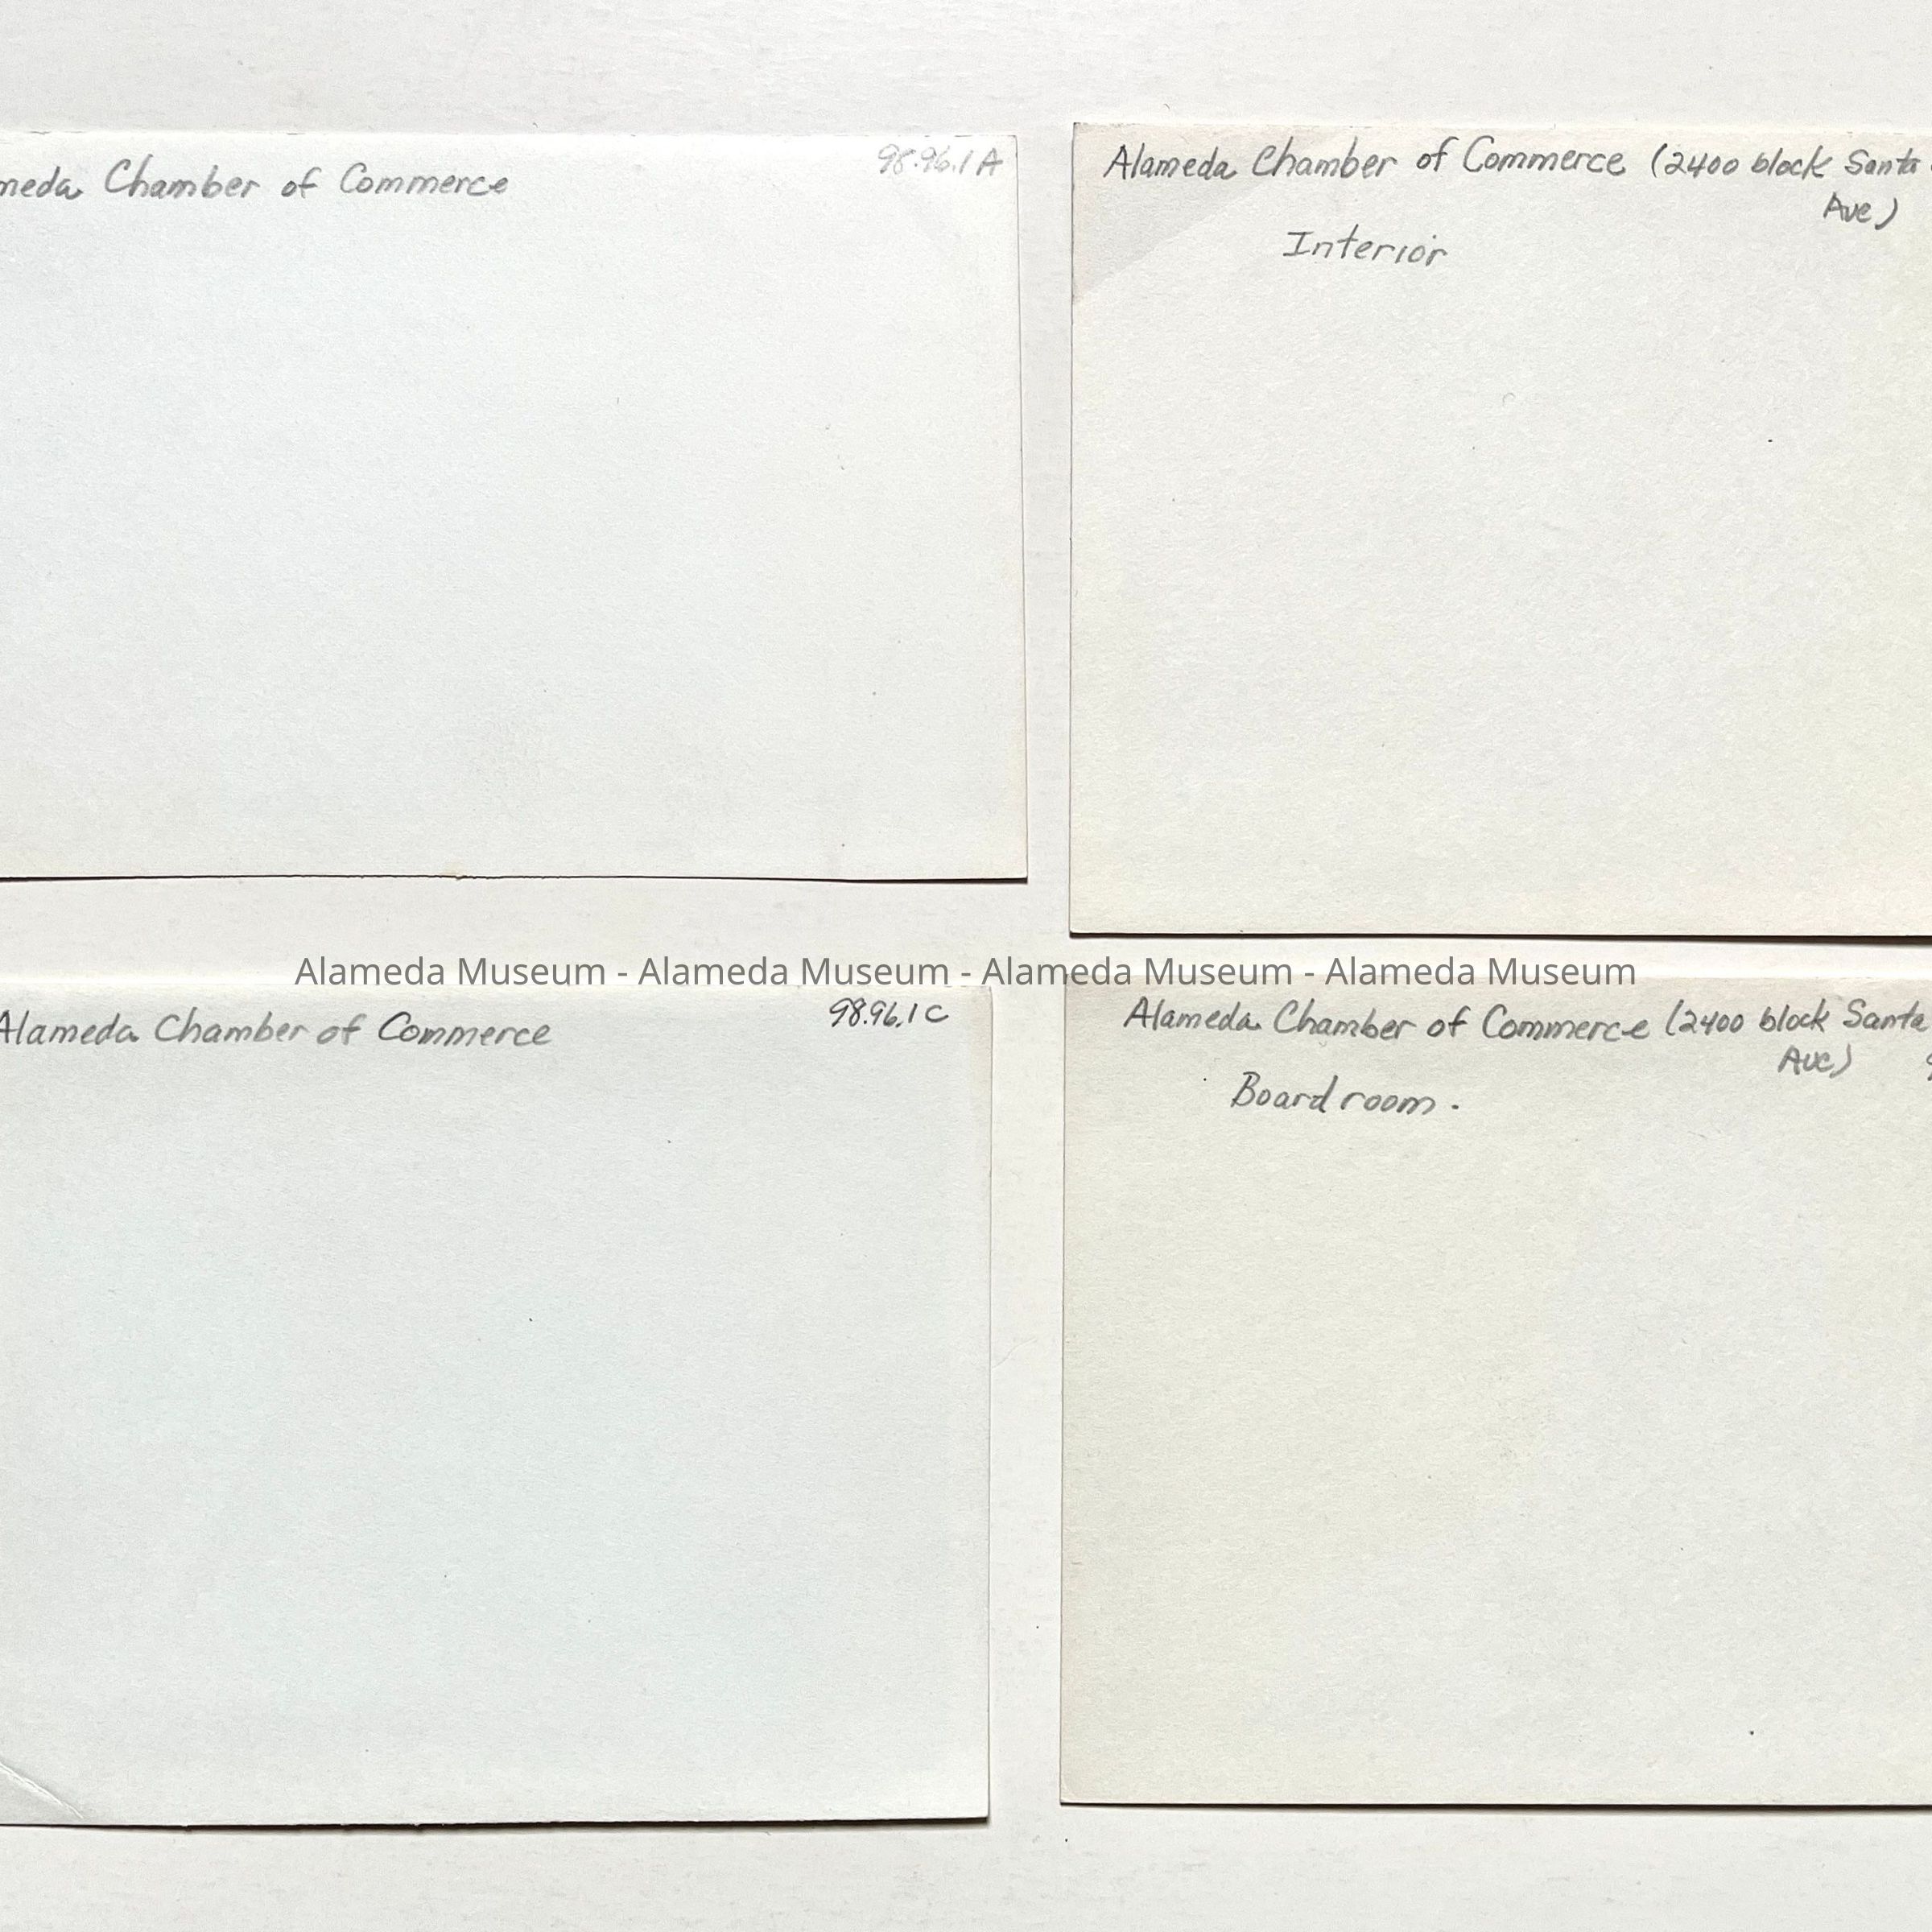 meda Chamber of Commerce 98.96.1 A
Alameda Chamber of Commerce (2400 block Santa
Ave)
Interior
Alameda Museum - Alameda Museum - Alameda Museum - Alameda Museum
Alameda Chamber of Commerce 98.96.1 C
Alameda Chamber of Commerce (2400 block Santa
Ave)
Board room.